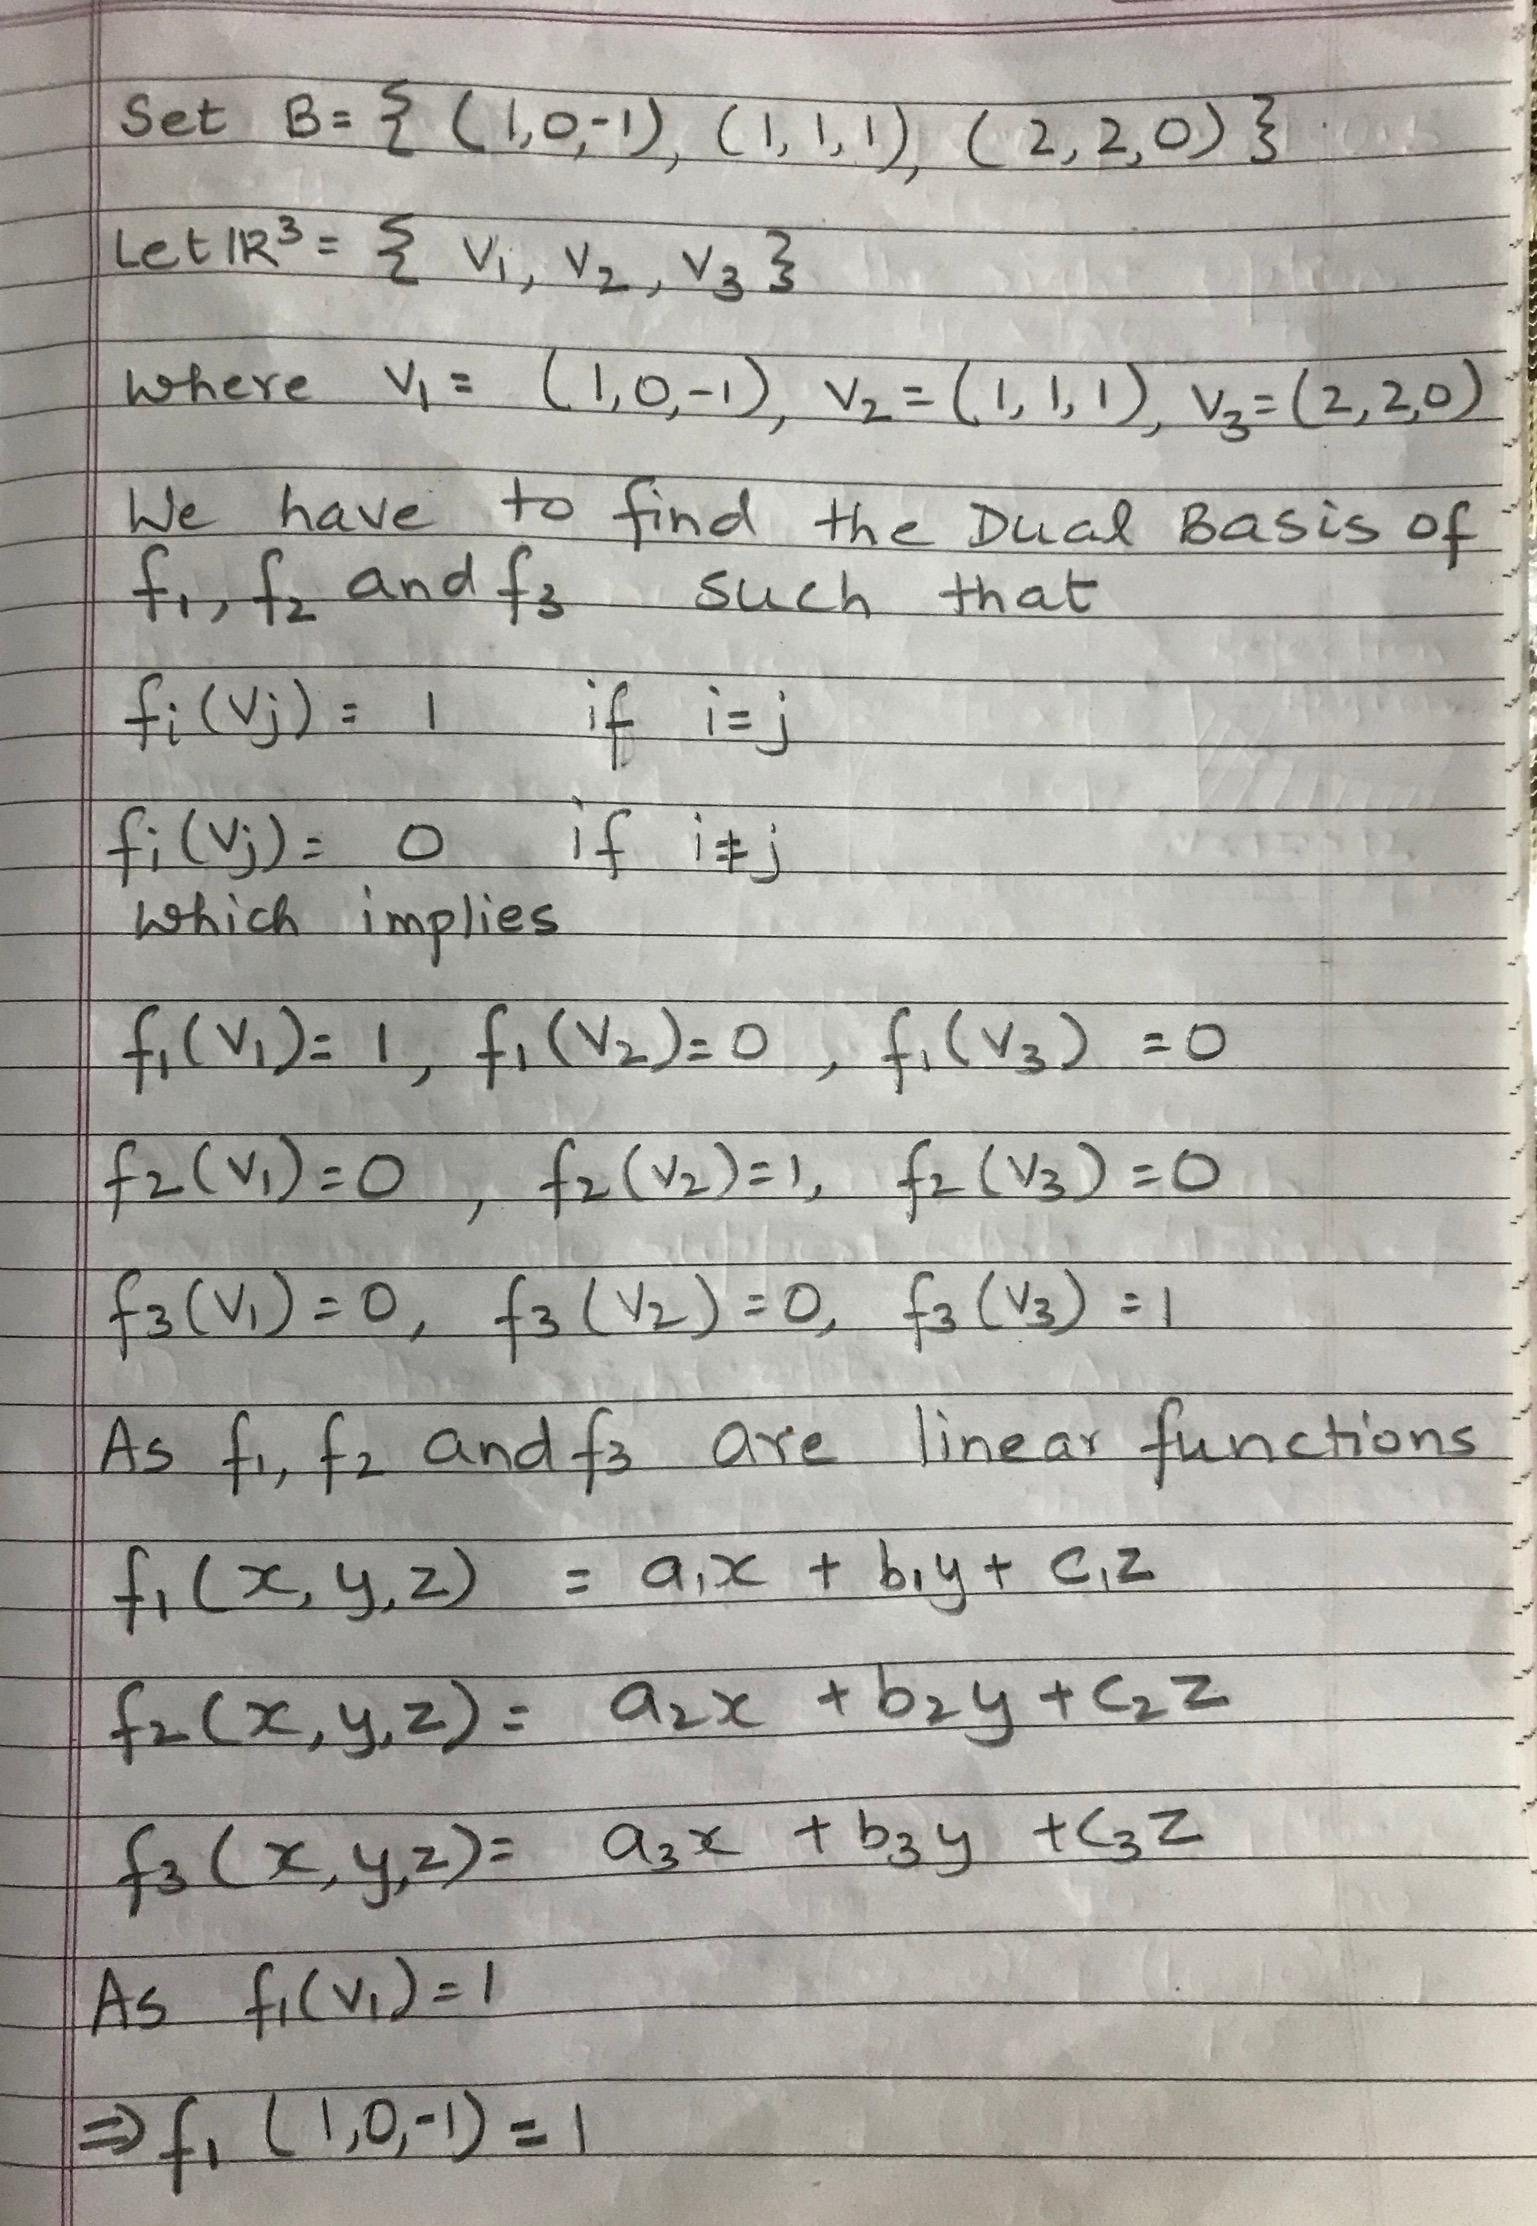 Set B = { (1,0,-1), (1,1,1), (2,2,0) }
Let ℝ³ = { V₁, V₂, V₃ }
where V₁ = (1,0,-1), V₂ = (1,1,1), V₃ = (2,2,0)
We have to find the Dual Basis of
f₁, f₂ and f₃ such that
fᵢ(Vⱼ) = 1 if i = j
fᵢ(Vⱼ) = 0 if i ≠ j
which implies
f₁(V₁) = 1, f₁(V₂) = 0, f₁(V₃) = 0
f₂(V₁) = 0, f₂(V₂) = 1, f₂(V₃) = 0
f₃(V₁) = 0, f₃(V₂) = 0, f₃(V₃) = 1
As f₁, f₂ and f₃ are linear functions
f₁(x, y, z) = a₁x + b₁y + c₁z
f₂(x, y, z) = a₂x + b₂y + c₂z
f₃(x, y, z) = a₃x + b₃y + c₃z
As f₁(V₁) = 1
⇒ f₁ (1,0,-1) = 1